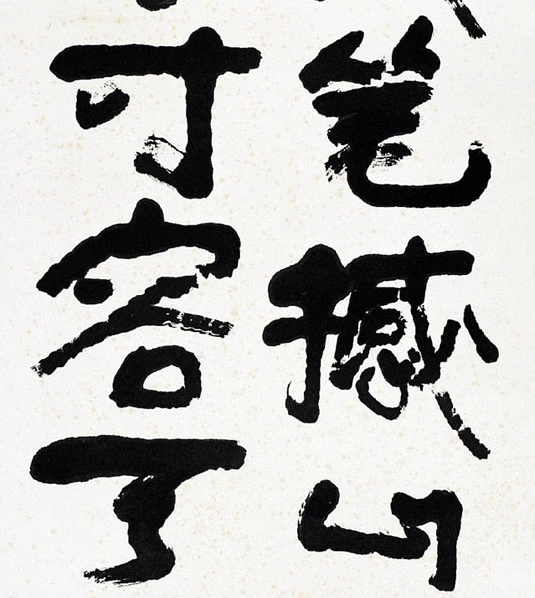 笔撼山
寸容